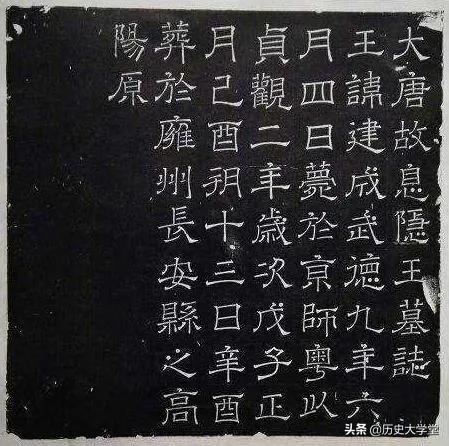 大唐故息隱王墓誌
王諱建成武德九年六
月四日薨於京師粵以
貞觀二年歲次戊子正
月己酉朔十三日辛酉
葬於雍州長安縣之高
陽原
头条 @历史大学堂